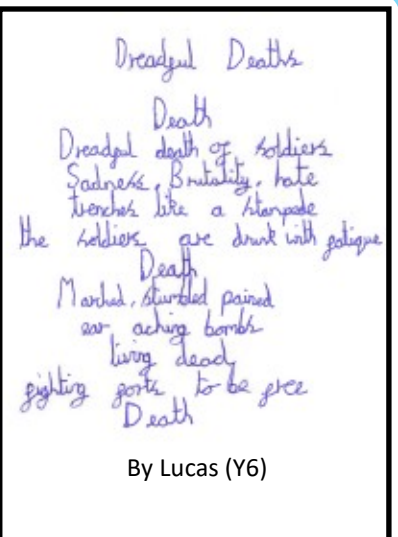 Dreadful Deaths
Death
Dreadful death of soldiers
Sadness, Brutality, hate
trenches like a stampede
the soldiers are drunk with fatigue
Death
Marched, stumbled pained
ear aching bombs
living dead
fighting forts to be free
Death
By Lucas (Y6)